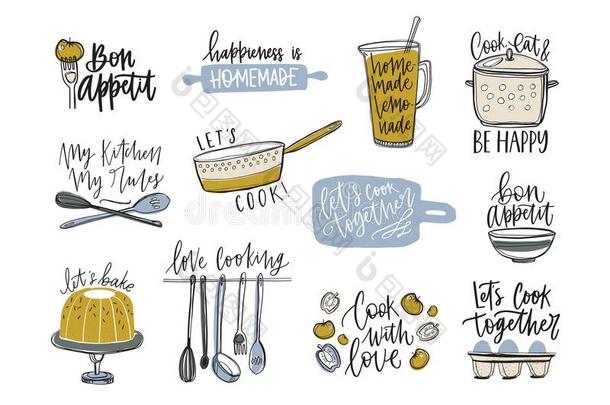 Bon
appetit
happieness is
HOMEMADE
home-
made
lemo-
nade
Cook, eat &
BE HAPPY
My Kitchen
My Rules
LET'S
COOK!
let's cook
together
bon
appetit
let's bake
love cooking
Cook
with
love
Let's Cook
together
dreamstime